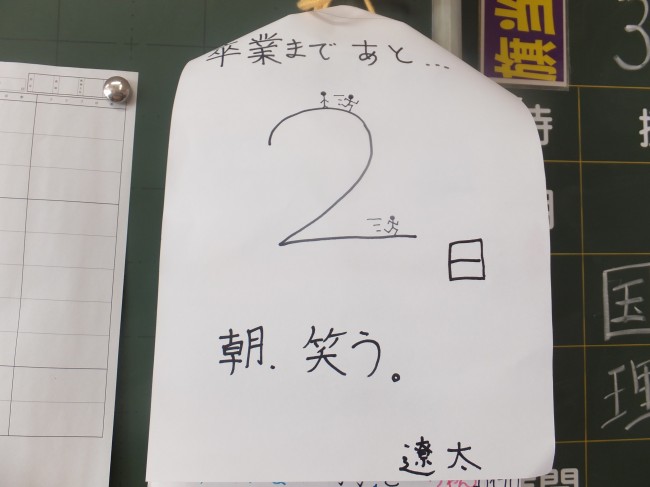 卒業まで あと...
2
日
朝、笑う。
遼太
国
理